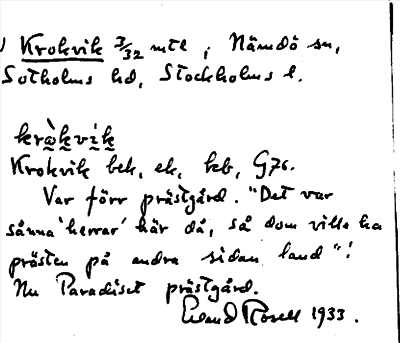 Krokvik 3/32 mtl, Nämdö sn,
Sotholms hd, Stockholms l.
kròkvík
Krokvik bek, ek, kb, G76.
Var förr prästgård. "Det var
sånna 'herrar' här då, så dom ville ha
prästen på andra sidan land"!
Nu Paradiset prästgård.
Erland Rosell 1933.